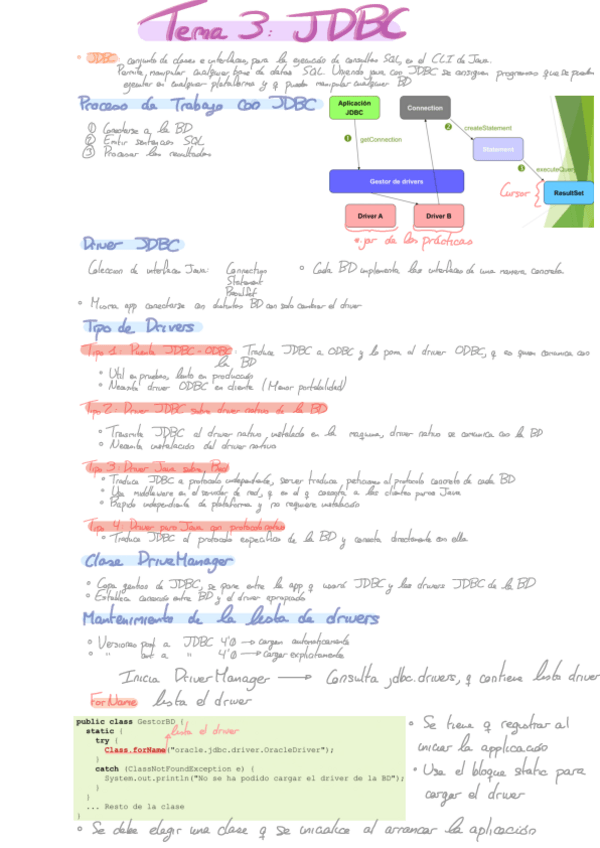 Tema 3: JDBC
• JDBC: conjunto de clases e interfaces, para la ejecución de consultas SQL, en el CLI de Java.
Permite, manipular cualquier base de datos SQL. Usando java con JDBC se consiguen programas que se pueden
ejecutar en cualquier plataforma y q puedan manipular cualquier BD
Proceso de Trabajo con JDBC
① Conectarse a la BD
② Emitir sentencias SQL
③ Procesar los resultados
Aplicación
JDBC
Connection
1 getConnection
2 createStatement
Statement
3 executeQuery
Gestor de drivers
Cursor
ResultSet
Driver A
Driver B
.jar de las prácticas
Driver JDBC
Colección de interfaces Java: Connection
Statement
ResultSet
• Cada BD implementa las interfaces de una manera concreta
• Misma app conectarse con distintas BD con solo cambiar el driver
Tipo de Drivers
Tipo 1: Puente JDBC-ODBC: Traduce JDBC a ODBC y lo pasa al driver ODBC, q es quien comunica con
la BD
• Util en pruebas, lento en producción
• Necesita driver ODBC en cliente (Menor portabilidad)
Tipo 2: Driver JDBC sobre driver nativo de la BD
• Transmite JDBC al driver nativo, instalado en la maquina, driver nativo se comunica con la BD
• Necesita instalación del driver nativo
Tipo 3: Driver Java sobre Red
• Traduce JDBC a protocolo independiente, server traduce peticiones al protocolo concreto de cada BD
• Usa middleware en el servidor de red, q es el q conecta a los clientes puros Java
• Rápido independiente de plataforma y no requiere instalación
Tipo 4: Driver puro Java con protocolo nativo
• Traduce JDBC al protocolo especifico de la BD y conecta directamente con ella
Clase DriveManager
• Capa gestión de JDBC, se pone entre la app q usará JDBC y los drivers JDBC de la BD
• Establece conexión entre BD y el driver apropiado
Mantenimiento de la lista de drivers
• Versiones post a JDBC 4'0 → cargan automáticamente
• " ant a " 4'0 → cargar explícitamente
Inicia DriverManager → Consulta jdbc.drivers, q contiene lista driver
ForName lista el driver
public class GestorBD {
static {
lista el driver
try {
Class.forName("oracle.jdbc.driver.OracleDriver");
}
catch (ClassNotFoundException e) {
System.out.println("No se ha podido cargar el driver de la BD");
}
}
... Resto de la clase
}
• Se tiene q registrar al
iniciar la applicación
• Usa el bloque static para
cargar el driver
• Se debe elegir una clase q se inicialice al arrancar la aplicación